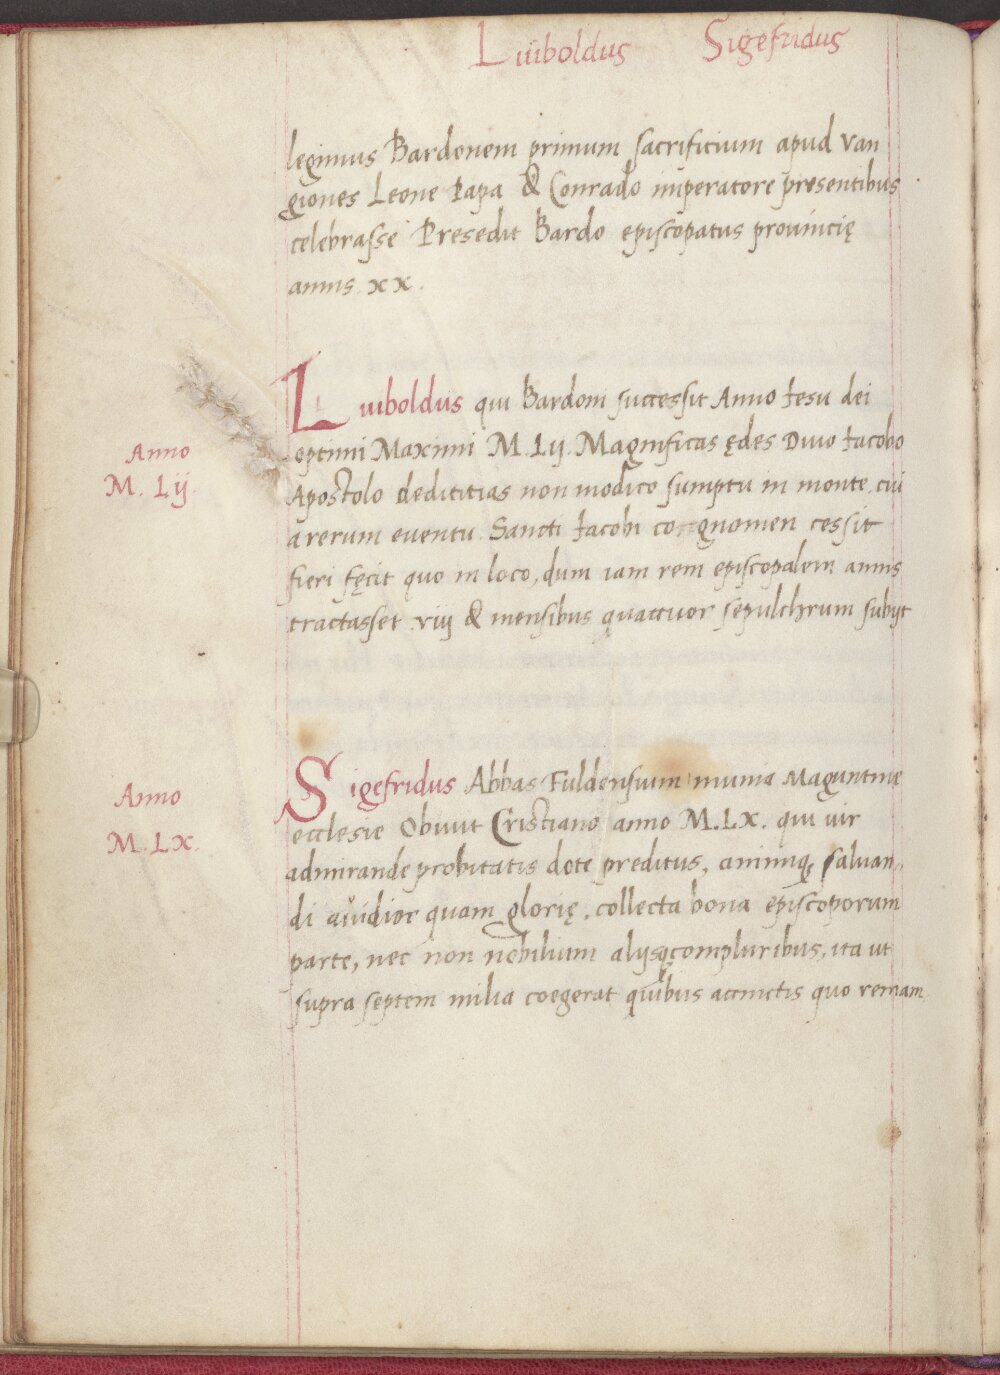 Luiboldus Sigefridus
legimus Bardonem primum sacrificium apud Van
giones Leone Papa & Conrado imperatore presentibus
celebrasse Presedit Bardo episcopatus prouincię
annis xx.
Luiboldus qui Bardoni successit Anno Iesu dei
Anno
optimi Maximi M.Lij. Magnificas ędes Diuo Iacobo
M. Lij.
Apostolo dedititias non modico sumptu in monte, cui
a rerum euentu Sancti Iacobi cognomen cessit
fieri fęcit quo in loco, dum iam rem episcopalem annis
tractasset viij & mensibus quattuor sepulchrum subijt
Anno
Sigefridus Abbas Fuldensium munia Maguntine
M.LX.
ecclesie Obiuit Cristiano anno M.LX. qui uir
admirande probitatis dote preditus, animiqꝫ saluan,
di auidior quam glorię, collecta bona episcoporum
parte, nec non nobilium alijsqꝫ compluribus, ita ut
supra septem milia coegerat quibus accinctis quo remam